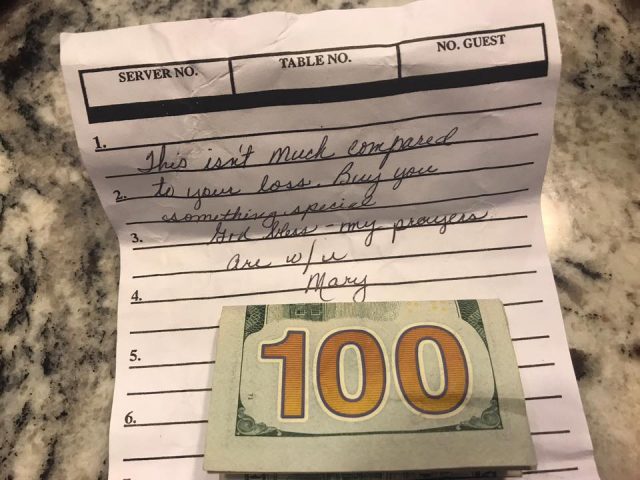 SERVER NO. TABLE NO. NO. GUEST
1.
This isn't much compared
2. to your loss. Buy you
something special
3. God bless - my prayers
are w/ u
4. Mary
100
5.
6.